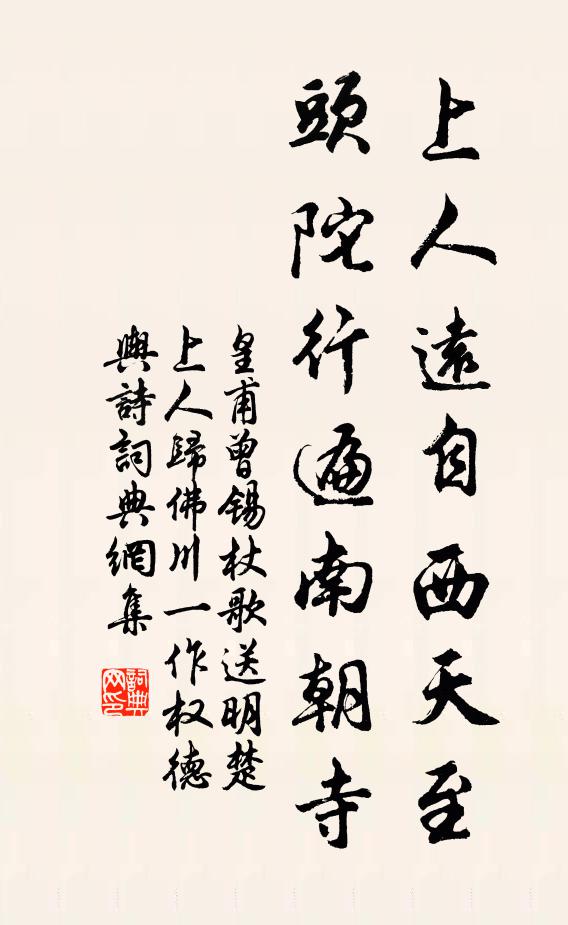 上人遠自西天至
頭陀行遍南朝寺
皇甫曾錫杖歌送明楚
上人歸佛川一作权德
輿詩詞典網集
詞典
网印